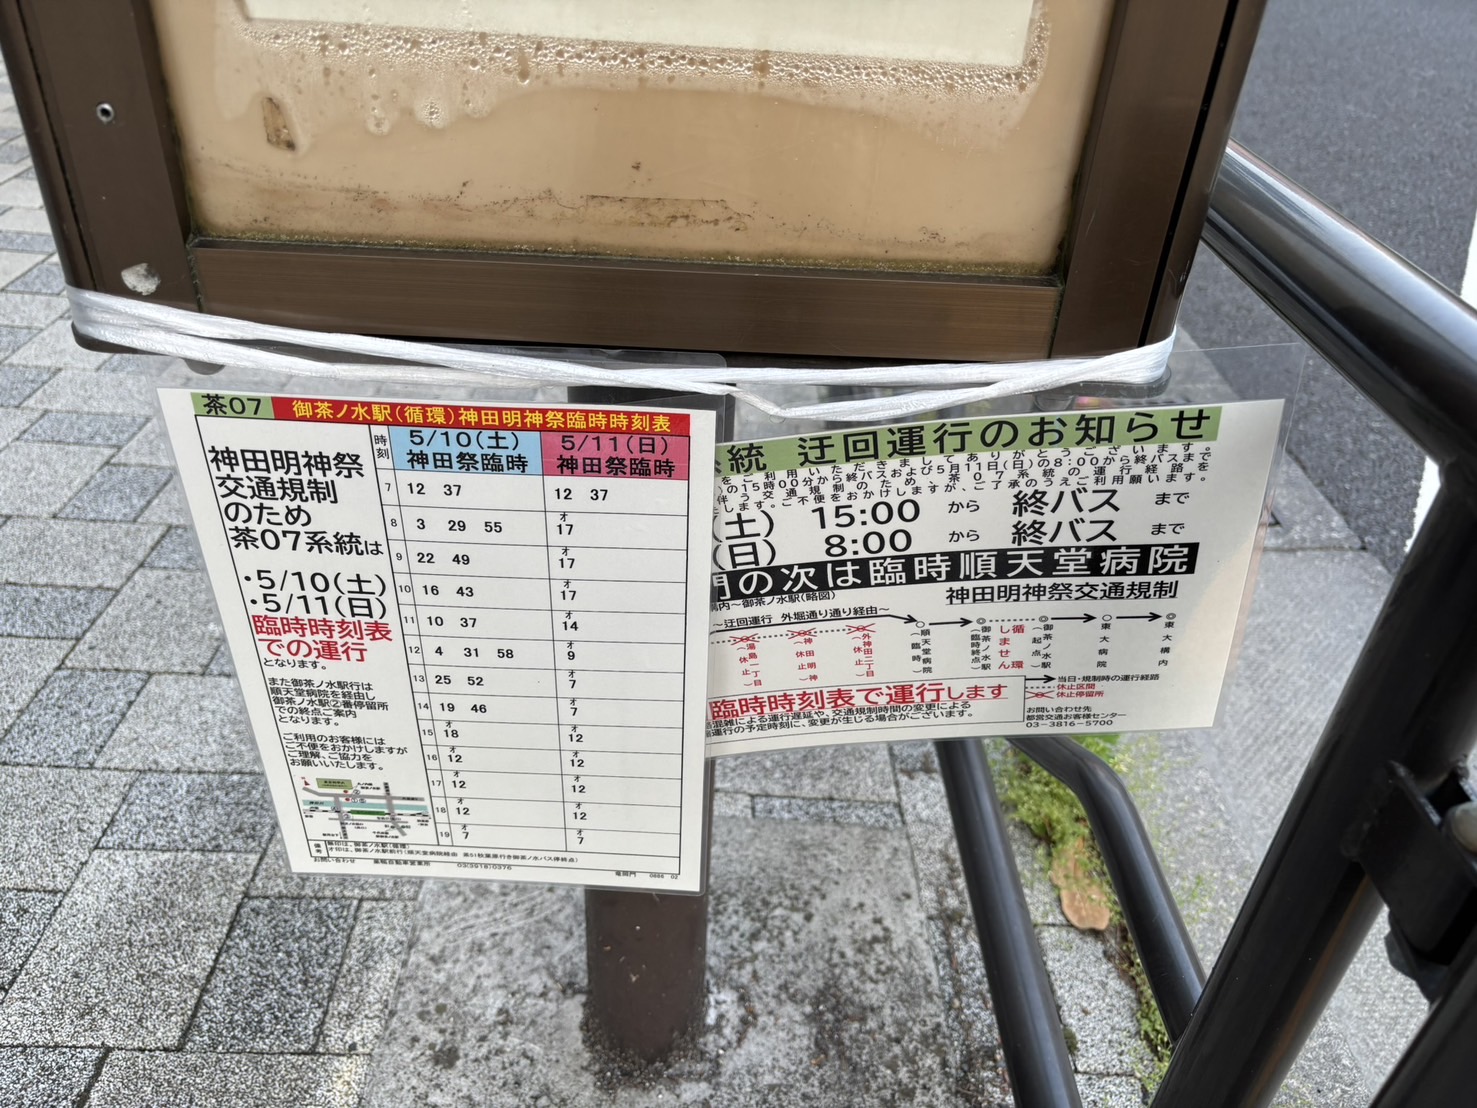 茶07 御茶ノ水駅(循環)神田明神祭臨時時刻表
神田明神祭
交通規制
のため
茶07系統は
・5/10(土)
・5/11(日)
臨時時刻表
での運行
となります。
また御茶ノ水駅行は
順天堂病院を経由し
御茶ノ水駅②番停留所
での終点ご案内
となります。
ご利用のお客様には
ご不便をおかけしますが
ご理解、ご協力を
お願いいたします。
時刻 5/10(土) 神田祭臨時 5/11(日) 神田祭臨時
7 12 37 12 37
8 3 29 55 オ17
9 22 49 オ17
10 16 43 オ17
11 10 37 オ14
12 4 31 58 オ9
13 25 52 オ7
14 19 46 オ7
15 オ18 オ12
16 オ12 オ12
17 オ12 オ12
18 オ12 オ12
19 オ7 オ7
備考 無印は、御茶ノ水駅(循環)
オ印は、御茶ノ水駅前行(順天堂病院経由 茶51秋葉原行き御茶ノ水バス停終点)
お問い合わせ 巣鴨自動車営業所 03(3918)0376
竜岡門
系統 迂回運行のお知らせ
をご利用いただきましてありがとうございます。
)の15時00分から終バスおよび5月11日(日)の8:00から終バスまで
伴う交通規制のため、茶07系統の運行経路を
します。ご不便をおかけしますが、ご了承のうえご利用願います。
(土) 15:00 から 終バス まで
(日) 8:00 から 終バス まで
門の次は臨時順天堂病院
構内~御茶ノ水駅(略図) 神田明神祭交通規制
~迂回運行 外堀通り通り経由~
(湯島一丁目) 休止
(神田明神) 休止
(外神田二丁目) 休止
(順天堂病院) 臨時
(御茶ノ水駅) 臨時終点
循環しません
(御茶ノ水駅) 起点
東大病院
東大構内
当日・規制時の運行経路
休止区間
休止停留所
臨時時刻表で運行します
混雑による運行遅延や、交通規制時間の変更による
運行の予定時刻に、変更が生じる場合がございます。
お問い合わせ先
都営交通お客様センター
03-3816-5700